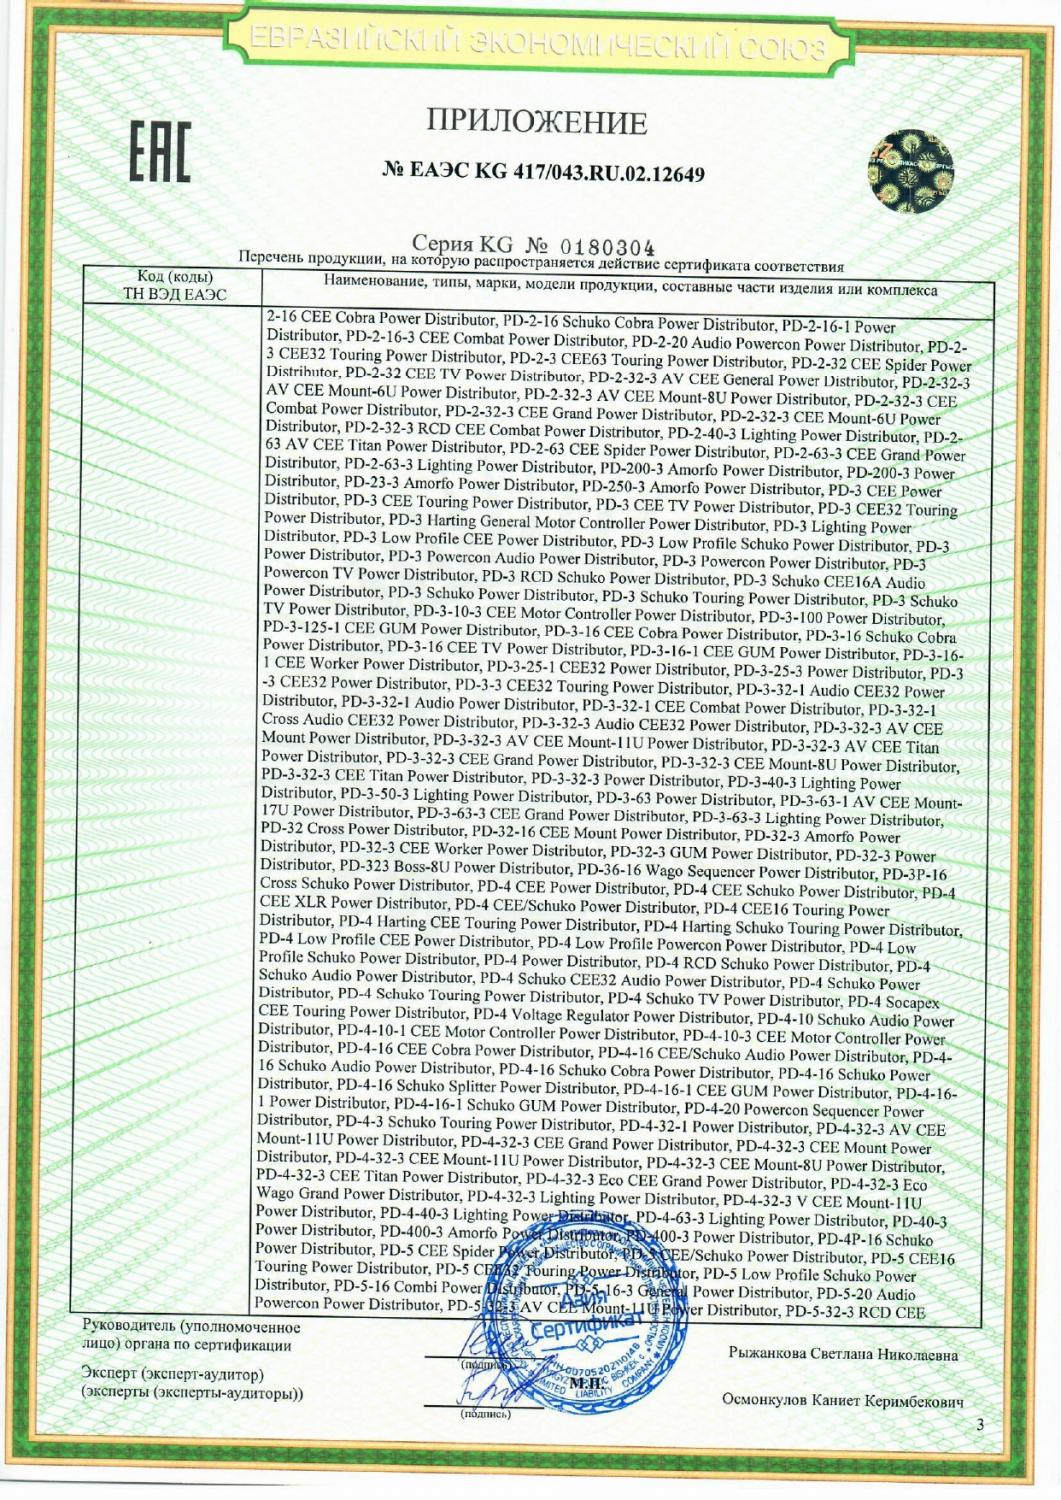 ЕВРАЗИЙСКИЙ ЭКОНОМИЧЕСКИЙ СОЮЗ
ЕАС
ПРИЛОЖЕНИЕ
№ ЕАЭС KG 417/043.RU.02.12649
Серия KG № 0180304
Перечень продукции, на которую распространяется действие сертификата соответствия
Код (коды)
ТН ВЭД ЕАЭС
Наименование, типы, марки, модели продукции, составные части изделия или комплекса
2-16 CEE Cobra Power Distributor, PD-2-16 Schuko Cobra Power Distributor, PD-2-16-1 Power
Distributor, PD-2-16-3 CEE Combat Power Distributor, PD-2-20 Audio Powercon Power Distributor, PD-2-
3 CEE32 Touring Power Distributor, PD-2-3 CEE63 Touring Power Distributor, PD-2-32 CEE Spider Power
Distributor, PD-2-32 CEE TV Power Distributor, PD-2-32-3 AV CEE General Power Distributor, PD-2-32-3
AV CEE Mount-6U Power Distributor, PD-2-32-3 AV CEE Mount-8U Power Distributor, PD-2-32-3 CEE
Combat Power Distributor, PD-2-32-3 CEE Grand Power Distributor, PD-2-32-3 CEE Mount-6U Power
Distributor, PD-2-32-3 RCD CEE Combat Power Distributor, PD-2-40-3 Lighting Power Distributor, PD-2-
63 AV CEE Titan Power Distributor, PD-2-63 CEE Spider Power Distributor, PD-2-63-3 CEE Grand Power
Distributor, PD-2-63-3 Lighting Power Distributor, PD-200-3 Amorfo Power Distributor, PD-200-3 Power
Distributor, PD-23-3 Amorfo Power Distributor, PD-250-3 Amorfo Power Distributor, PD-3 CEE Power
Distributor, PD-3 CEE Touring Power Distributor, PD-3 CEE TV Power Distributor, PD-3 CEE32 Touring
Power Distributor, PD-3 Harting General Motor Controller Power Distributor, PD-3 Lighting Power
Distributor, PD-3 Low Profile CEE Power Distributor, PD-3 Low Profile Schuko Power Distributor, PD-3
Power Distributor, PD-3 Powercon Audio Power Distributor, PD-3 Powercon Power Distributor, PD-3
Powercon TV Power Distributor, PD-3 RCD Schuko Power Distributor, PD-3 Schuko CEE16A Audio
Power Distributor, PD-3 Schuko Power Distributor, PD-3 Schuko Touring Power Distributor, PD-3 Schuko
TV Power Distributor, PD-3-10-3 CEE Motor Controller Power Distributor, PD-3-100 Power Distributor,
PD-3-125-1 CEE GUM Power Distributor, PD-3-16 CEE Cobra Power Distributor, PD-3-16 Schuko Cobra
Power Distributor, PD-3-16 CEE TV Power Distributor, PD-3-16-1 CEE GUM Power Distributor, PD-3-16-
1 CEE Worker Power Distributor, PD-3-25-1 CEE32 Power Distributor, PD-3-25-3 Power Distributor, PD-3
-3 CEE32 Power Distributor, PD-3-3 CEE32 Touring Power Distributor, PD-3-32-1 Audio CEE32 Power
Distributor, PD-3-32-1 Audio Power Distributor, PD-3-32-1 CEE Combat Power Distributor, PD-3-32-1
Cross Audio CEE32 Power Distributor, PD-3-32-3 Audio CEE32 Power Distributor, PD-3-32-3 AV CEE
Mount Power Distributor, PD-3-32-3 AV CEE Mount-11U Power Distributor, PD-3-32-3 AV CEE Titan
Power Distributor, PD-3-32-3 CEE Grand Power Distributor, PD-3-32-3 CEE Mount-8U Power Distributor,
PD-3-32-3 CEE Titan Power Distributor, PD-3-32-3 Power Distributor, PD-3-40-3 Lighting Power
Distributor, PD-3-50-3 Lighting Power Distributor, PD-3-63 Power Distributor, PD-3-63-1 AV CEE Mount-
17U Power Distributor, PD-3-63-3 CEE Grand Power Distributor, PD-3-63-3 Lighting Power Distributor,
PD-32 Cross Power Distributor, PD-32-16 CEE Mount Power Distributor, PD-32-3 Amorfo Power
Distributor, PD-32-3 CEE Worker Power Distributor, PD-32-3 GUM Power Distributor, PD-32-3 Power
Distributor, PD-323 Boss-8U Power Distributor, PD-36-16 Wago Sequencer Power Distributor, PD-3P-16
Cross Schuko Power Distributor, PD-4 CEE Power Distributor, PD-4 CEE Schuko Power Distributor, PD-4
CEE XLR Power Distributor, PD-4 CEE/Schuko Power Distributor, PD-4 CEE16 Touring Power
Distributor, PD-4 Harting CEE Touring Power Distributor, PD-4 Harting Schuko Touring Power Distributor,
PD-4 Low Profile CEE Power Distributor, PD-4 Low Profile Powercon Power Distributor, PD-4 Low
Profile Schuko Power Distributor, PD-4 Power Distributor, PD-4 RCD Schuko Power Distributor, PD-4
Schuko Audio Power Distributor, PD-4 Schuko CEE32 Audio Power Distributor, PD-4 Schuko Power
Distributor, PD-4 Schuko Touring Power Distributor, PD-4 Schuko TV Power Distributor, PD-4 Socapex
CEE Touring Power Distributor, PD-4 Voltage Regulator Power Distributor, PD-4-10 Schuko Audio Power
Distributor, PD-4-10-1 CEE Motor Controller Power Distributor, PD-4-10-3 CEE Motor Controller Power
Distributor, PD-4-16 CEE Cobra Power Distributor, PD-4-16 CEE/Schuko Audio Power Distributor, PD-4-
16 Schuko Audio Power Distributor, PD-4-16 Schuko Cobra Power Distributor, PD-4-16 Schuko Power
Distributor, PD-4-16 Schuko Splitter Power Distributor, PD-4-16-1 CEE GUM Power Distributor, PD-4-16-
1 Power Distributor, PD-4-16-1 Schuko GUM Power Distributor, PD-4-20 Powercon Sequencer Power
Distributor, PD-4-3 Schuko Touring Power Distributor, PD-4-32-1 Power Distributor, PD-4-32-3 AV CEE
Mount-11U Power Distributor, PD-4-32-3 CEE Grand Power Distributor, PD-4-32-3 CEE Mount Power
Distributor, PD-4-32-3 CEE Mount-11U Power Distributor, PD-4-32-3 CEE Mount-8U Power Distributor,
PD-4-32-3 CEE Titan Power Distributor, PD-4-32-3 Eco CEE Grand Power Distributor, PD-4-32-3 Eco
Wago Grand Power Distributor, PD-4-32-3 Lighting Power Distributor, PD-4-32-3 V CEE Mount-11U
Power Distributor, PD-4-40-3 Lighting Power Distributor, PD-4-63-3 Lighting Power Distributor, PD-40-3
Power Distributor, PD-400-3 Amorfo Power Distributor, PD-400-3 Power Distributor, PD-4P-16 Schuko
Power Distributor, PD-5 CEE Spider Power Distributor, PD-5 CEE/Schuko Power Distributor, PD-5 CEE16
Touring Power Distributor, PD-5 CEE32 Touring Power Distributor, PD-5 Low Profile Schuko Power
Distributor, PD-5-16 Combi Power Distributor, PD-5-16-3 General Power Distributor, PD-5-20 Audio
Powercon Power Distributor, PD-5-32-3 AV CEE Mount-11U Power Distributor, PD-5-32-3 RCD CEE
Руководитель (уполномоченное
лицо) органа по сертификации
(подпись)
Рыжанкова Светлана Николаевна
Азия
Сертификат
М.П.
LIMITED LIABILITY COMPANY
Эксперт (эксперт-аудитор)
(эксперты (эксперты-аудиторы))
(подпись)
Осмонкулов Каниет Керимбекович
3